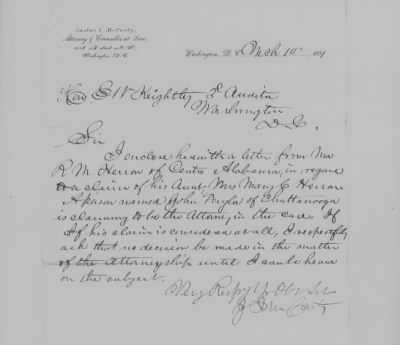 Justus I. McCarty,
Attorney & Counsellor at Law,
Washington, D.C.
Washington, D.C. Mch 19th
Hon E W Keightley 3d Auditor
Washington
D C.
Sir
I enclose herewith a letter from Mr
R. M Herron of Centre Alabama, in regard
to a claim of his Aunt Mrs Mary C Herron
A person named John of Chattanooga
is claiming to be the Attorney in the case. If
If his claim is considered at all, I respectfully
ask that no decision be made in the matter
of the Attorneyship until I can be heard
on the subject.
Very Respy Yr Obt Svt